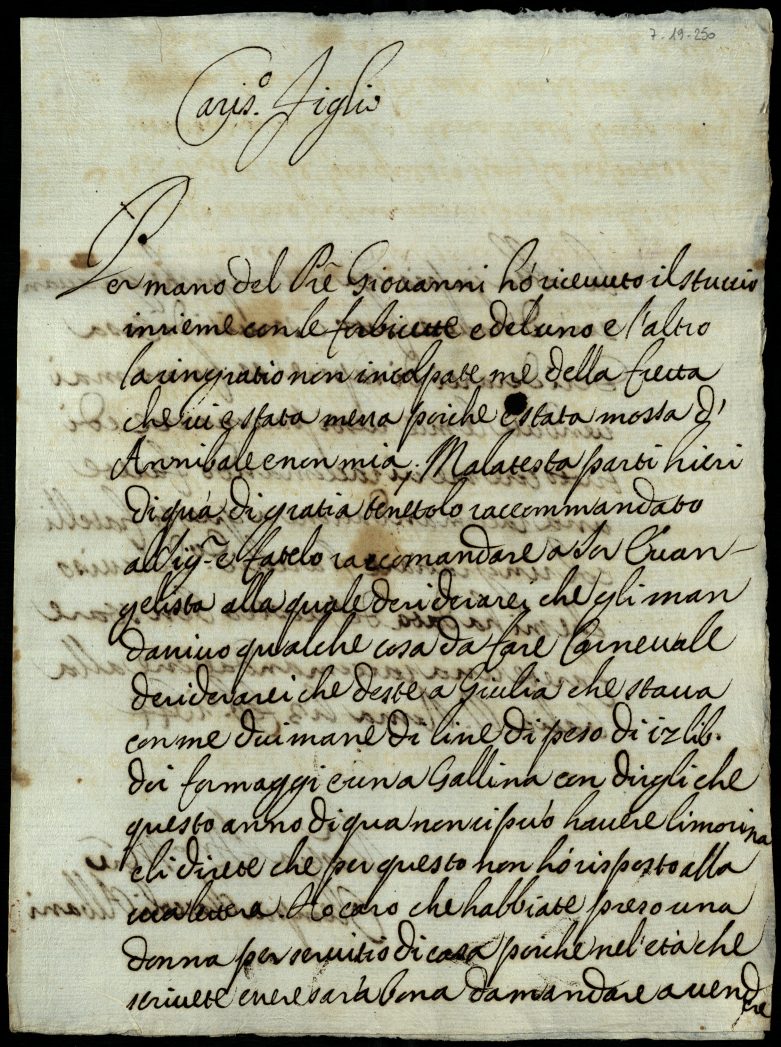 7-19-250
Caris.º figlio
Per mano del Prẽ Giovanni hò ricevuto il stuccio
insieme con le forbicette e del uno e l'altro
la ringratio non incolpate me della fretta
che vi è stata messa poiche è stata mossa d'
Annibale e non mia; Malatesta parti hieri
di quà di gratia tenetolo raccommandato
al Sig.re e fatelo raccomandare a Sor Evan-
gelista alla quale desiderarei che gli man
davivo qualche cosa da fare Carnevale
desiderarei che deste a Giulia che stava
con me dui mane di line di peso di 12 lib.
doi formaggi e una Gallina con dirgli che
questo anno di qua non si può havere limosina
eli direte che per questo non hò risposto alla
sua lettera Ho caro che habbiate preso una
donna per servitio di casa poiche nel età che
scrivete essere sarà bona da mandare a vendere